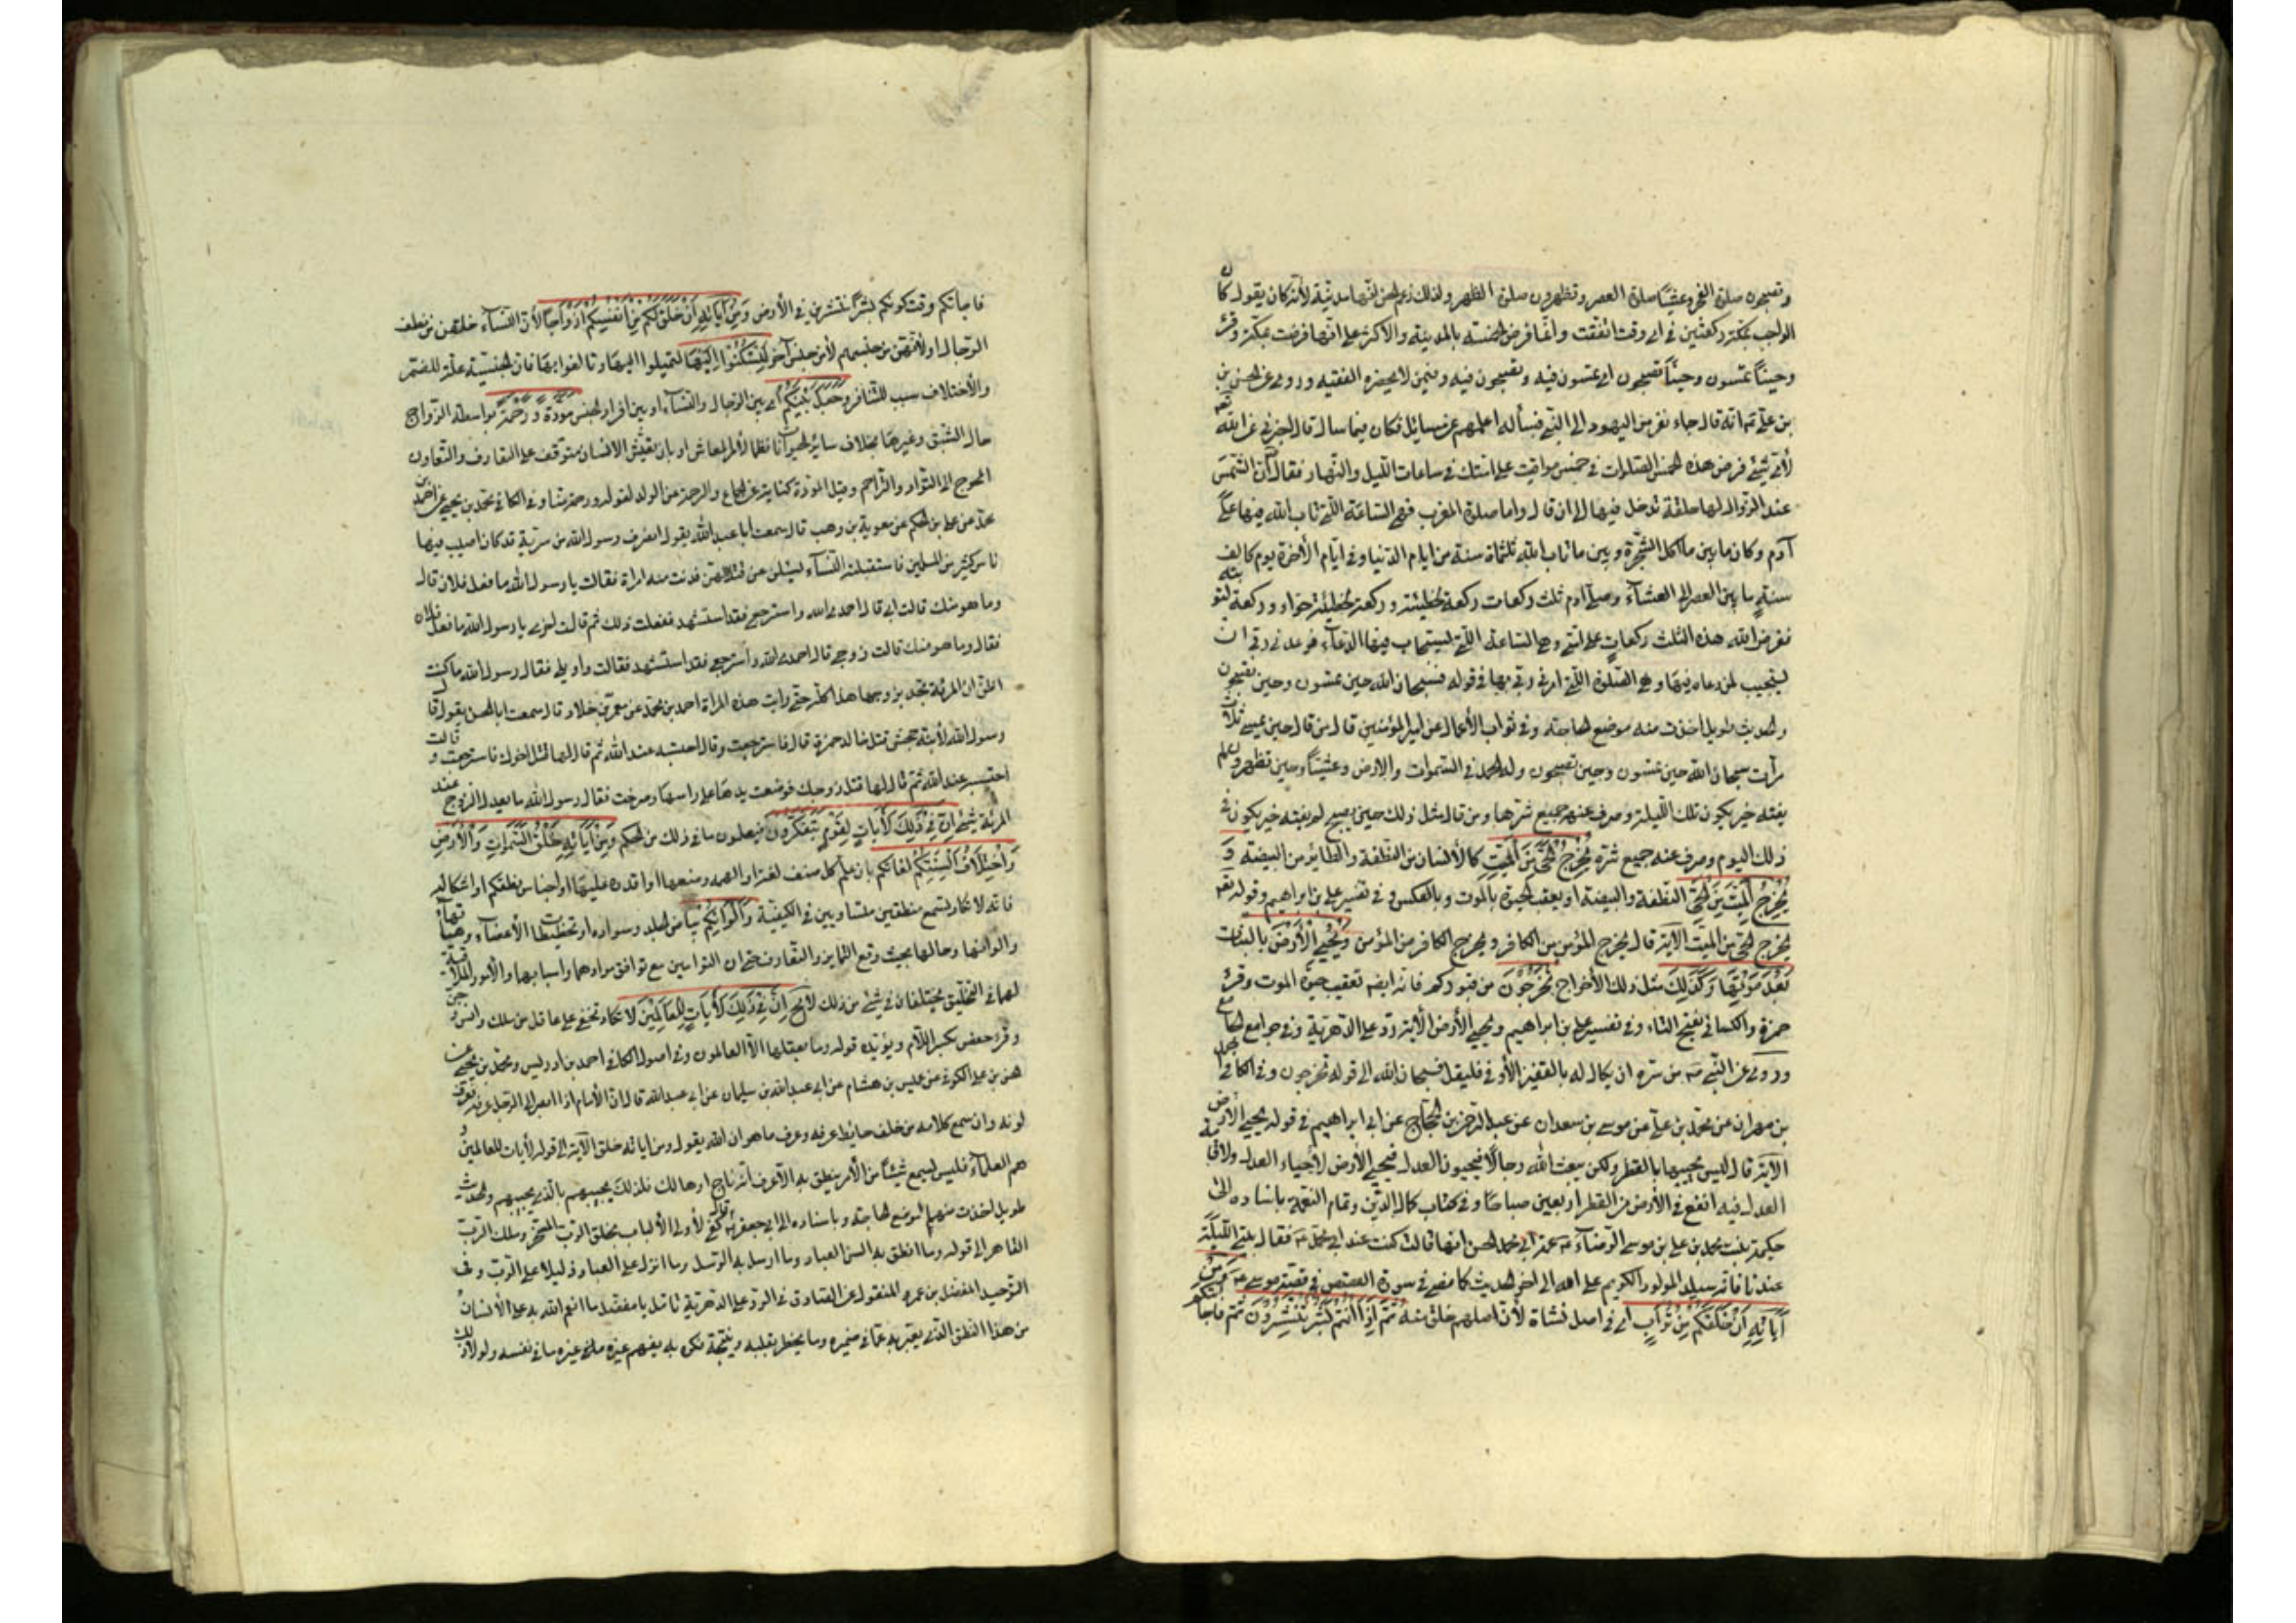 وتصبحون صلوة الفجر وعشيا صلوة العصر وتظهرون صلوة الظهر ولذلك زعم الحسن انها مدنية لأنه كان يقول كان
الواجب بمكة ركعتين في اي وقت اتفقت وانما فرض الخمسة بالمدينة والأكثر على انها فرضت بمكة وقرئ
وحينًا تمسون وحينًا تصبحون اي تمسون فيه وتصبحون فيه وفيمن لا يحضره الفقيه وروى عن الحسن بن
بن علي انه قال جاء نفر من اليهود الى النبي فسأله اعلمهم عن مسائل فكان فيما سأله قال اخبرني عن الله
لأي شيء فرض هذه الخمس الصلوات في خمس مواقيت على امتك في ساعات الليل والنهار فقال ان الشمس
عند الزوال لها حلقة تدخل فيها الى ان قال واما صلوة المغرب فهي الساعة التي تاب الله فيها على
آدم وكان ما بين ما اكل الشجرة وبين ما تاب الله ثلثماة سنة من ايام الدنيا وفي ايام الأخرة يوم كالف
سنة ما بين العصر الى العشاء وصلى آدم ثلث ركعات ركعة لخطيئته وركعة لخطيئة حواء وركعة لتوبته
ففرض الله هذه الثلث ركعات على امتي وهي الساعة التي يستجاب فيها الدعاء فوعدني ربي ان
يستجيب لمن دعاه فيها وهي الصلوة التي امرني ربي بها في قوله فسبحان الله حين تمسون وحين تصبحون
والحديث طويل اخذت منه موضع الحاجة وفي ثواب الأعمال عن امير المؤمنين قال من قال حين يمسي ثلاث
مرات سبحان الله حين تمسون وحين تصبحون وله الحمد في السموات والارض وعشيًا وحين تظهرون لم
يفته خير يكون تلك الليلة وصرف عنه جميع شرها ومن قال مثل ذلك حين يصبح لم يفته خير يكون في
ذلك اليوم وصرف عنه جميع شره يُخْرِجُ الْحَيَّ مِنَ الْمَيِّتِ كالأنسان من النطفة والطائر من البيضة وَ
يُخْرِجُ الْمَيِّتَ مِنَ الْحَيِّ النطفة والبيضة او يعقب الحيوة بالموت وبالعكس وفي تفسير علي بن ابراهيم وقوله
يخرج الحي من الميت الآية قال يخرج المؤمن من الكافر ويخرج الكافر من المؤمن وَيُحْيِي الْأَرْضَ بالنبات
بَعْدَ مَوْتِهَا وَكَذَلِكَ مثل ذلك الأخراج تُخْرَجُونَ من قبوركم فانه ايضا تعقيب حيوة الموت وقرئ
حمزة والكسائي بفتح التاء وفي تفسير علي بن ابراهيم ويحيي الأرض الآية رد على الدهرية وفي جوامع الجامع
وروى عن النبي من سره ان يكال له بالقفيز الأوفى فليقل فسبحان الله الى قوله تخرجون وفي الكافي
بن مهران عن محمد بن علي عن موسى بن سعدان عن عبد الرحمن بن الحجاج عن ابي ابراهيم في قوله يحيي الأرض
الآية قال ليس يحييها بالقطر ولكن يبعث الله رجالًا فيحيون العدل فتحيي الأرض لأحياء العدل ولاقامة
العدل فيه انفع في الأرض من القطر اربعين صباحًا وفي كتاب كمال الدين وتمام النعمة باسناده الى
حكيمة بنت محمد بن علي بن موسى الرضا عمة ابي محمد الحسن انها قالت كنت عند ابي محمد فقال بيتي الليلة
عندنا فانه سيلد المولود الكريم على الله الى اخر الحديث كما مضى في سورة القصص في قصة موسى وَمِنْ
آيَاتِهِ أَنْ خَلَقَكُمْ مِنْ تُرَابٍ اي في اصل نشاة لأن اصلهم خلق منه ثُمَّ إِذَا أَنْتُمْ بَشَرٌ تَنْتَشِرُونَ ثم فاجأتكم
فاجأتكم وقت كونكم بشرًا تنتشرين في الأرض وَمِنْ آيَاتِهِ أَنْ خَلَقَ لَكُمْ مِنْ أَنْفُسِكُمْ أَزْوَاجًا لأن النساء خلقهن من نطف
الرجال او لأنهن من جنسهم لأمن جنس آخر لِتَسْكُنُوا إِلَيْهَا لتميلوا اليها وتالفوا بها فان الجنسية علة للضم
والأختلاف سبب للتنافر وَجَعَلَ بَيْنَكُمْ اي بين الرجال والنساء او بين افراد الجنس مَوَدَّةً وَرَحْمَةً بواسطة الزواج
حال الشبق وغيرها بخلاف ساير الحيوانات نظما لأمر المعاش او بان تعيش الانسان متوقف على التعارف والتعاون
المحوج الى التواد والتراحم وقيل المودة كناية عن الجماع والرحمة من الولد لقوله ورحمة منا وفي الكافي محمد بن يحيى عن احمد بن
محمد عن علي بن الحكم عن معوية بن وهب قال سمعت ابا عبد الله يقول انصرف رسول الله من سرية قد كان اصيب فيها
ناس كثير من المسلمين فاستقبلته النساء يسئلن عن قتلاهن فدنت منه امراة فقالت يا رسول الله ما فعل فلان قال
وما هو منك قالت ابي قال احمدي الله واسترجعي فقد استشهد ففعلت ذلك ثم قالت اخرى يا رسول الله ما فعل فلان
فقال وما هو منك قالت زوجي قال احمدي الله واسترجعي فقد استشهد فقالت واويلي فقال رسول الله ما كنت
اظن ان المرئة تجد بزوجها هذا كله حتى رايت هذه المراة احمد بن محمد عن معمر بن خلاد قال سمعت ابا الحسن يقول قال
رسول الله لأبنة جحش قتل خالك حمزة قال فاسترجعت وقالت احتسبه عند الله ثم قال لها قتل اخوك فاسترجعت وقالت
احتسبه عند الله ثم قال لها قتل زوجك فوضعت يدها على راسها وصرخت فقال رسول الله ما يعدل الزوج عند
المرئة شيء إِنَّ فِي ذَلِكَ لَآيَاتٍ لِقَوْمٍ يَتَفَكَّرُونَ فيعلمون ما في ذلك من الحكم وَمِنْ آيَاتِهِ خَلْقُ السَّمَوَاتِ وَالْأَرْضِ
وَاخْتِلَافُ أَلْسِنَتِكُمْ لغاتكم بان علم كل صنف لغته او الهمه وضعها او اقدره عليها او اجناس نطقكم او اشكاله
فانه لا تكاد يسمع منطقين متساويين في الكيفية وَأَلْوَانِكُمْ بياض الجلد وسواده او تخطيطات الأعضاء وهيئاتها
والوانها وحالها بحيث وقع التمايز والتعارف حتى ان التوامين مع توافق موادهما واسبابها والأمور الملاقية
لهما في التخليق يختلفان في شيء من ذلك لا محالة إِنَّ فِي ذَلِكَ لَآيَاتٍ لِلْعَالَمِينَ لا تكاد تخفى على عاقل من ملك وانس وجن
وقرء حفص بكسر اللام ويؤيده قوله وما يعقلها الا العالمون وفي اصول الكافي احمد بن ادريس ومحمد بن يحيى عن
الحسن بن علي الكوفي عن عبيس بن هشام عن ابي عبد الله بن سليمان عن ابي عبد الله قال ان الأمام اذا ابصر الى الرجل عرفه وعرف
لونه وان سمع كلامه من خلف حايط عرفه وعرف ما هو ان الله يقول ومن اياته خلق الآية الى قوله لأيات للعالمين و
هم العلماء فليس يسمع شيئًا من الأمر ينطق به الا عرفه ناج او هالك فلذلك يجيبهم بالذي يجيبهم والحديث
طويل اخذت منهما لموضع الحاجة وباسناده الى ابي جعفر قال كفى لأولى الألباب بخلق الرب المسخر وملك الرب
القاهر الى قوله وما انطق به السن العباد وما ارسل به الرسل وما انزل على العباد دليلا على الرب وفي
التوحيد المفضل بن عمر المنقول عن الصادق في الرد على الدهرية تامل يا مفضل ما انعم الله به على الأنسان
من هذا النطق الذي يعبر به عما في ضميره وما يخطر بقلبه ونتيجة فكره به يفهم غيره ما في نفسه ولولا ذلك